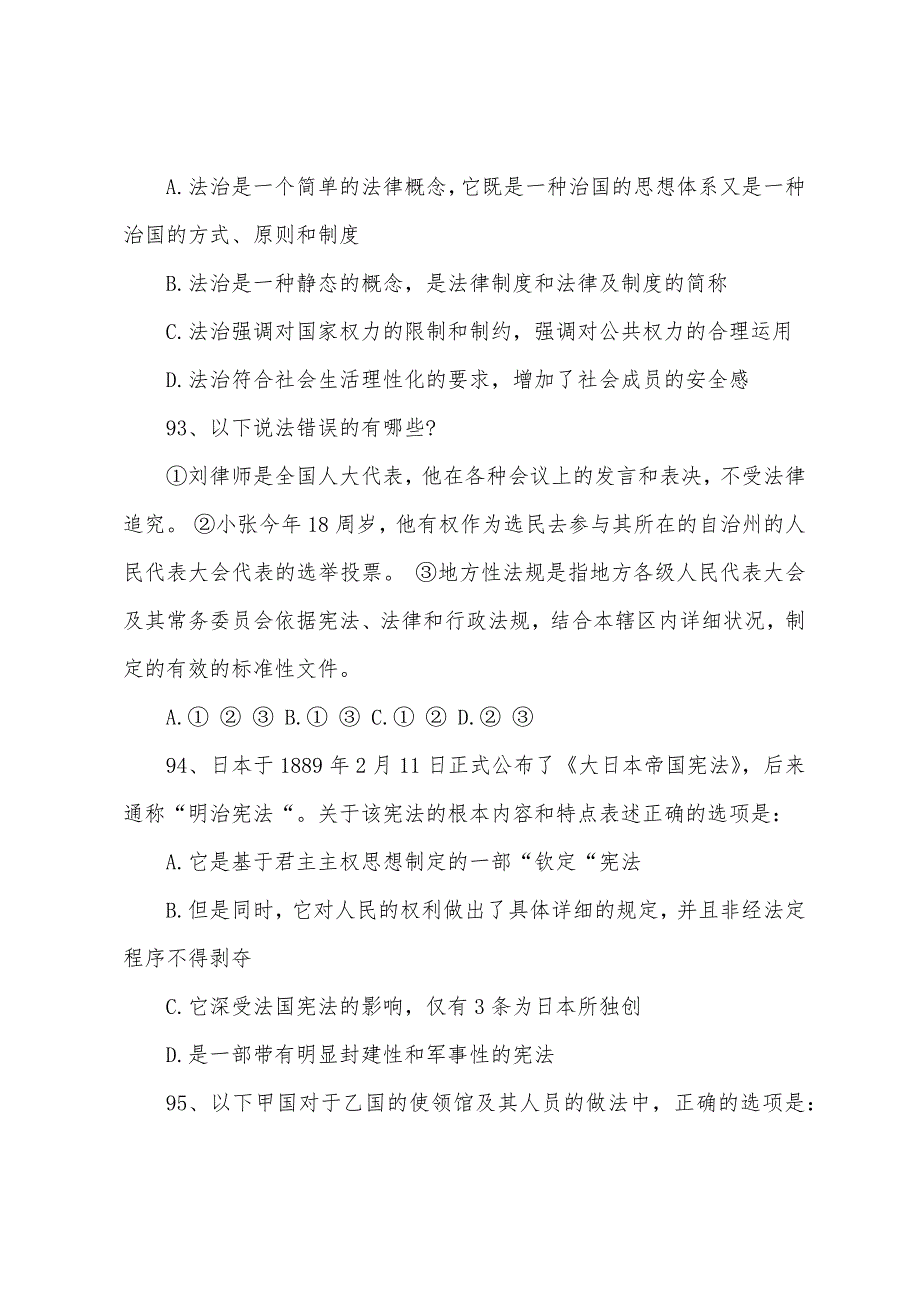 A.法治是一个简单的法律概念,它既是一种治国的思想体系又是一种
治国的方式、原则和制度
B.法治是一种静态的概念，是法律制度和法律及制度的简称
C.法治强调对国家权力的限制和制约，强调对公共权力的合理运用
D.法治符合社会生活理性化的要求，增加了社会成员的安全感
93、以下说法错误的有哪些?
①刘律师是全国人大代表，他在各种会议上的发言和表决，不受法律
追究。 ②小张今年 18 周岁，他有权作为选民去参与其所在的自治州的人
民代表大会代表的选举投票。 ③地方性法规是指地方各级人民代表大会
及其常务委员会依据宪法、法律和行政法规，结合本辖区内详细状况，制
定的有效的标准性文件。
A.① ② ③ B.① ③ C.① ② D.② ③
94、日本于 1889 年 2 月 11 日正式公布了《大日本帝国宪法》，后来
通称“明治宪法“。关于该宪法的根本内容和特点表述正确的选项是：
A.它是基于君主主权思想制定的一部“钦定“宪法
B.但是同时，它对人民的权利做出了具体详细的规定，并且非经法定
程序不得剥夺
C.它深受法国宪法的影响，仅有 3 条为日本所独创
D.是一部带有明显封建性和军事性的宪法
95、以下甲国对于乙国的使领馆及其人员的做法中，正确的选项是：